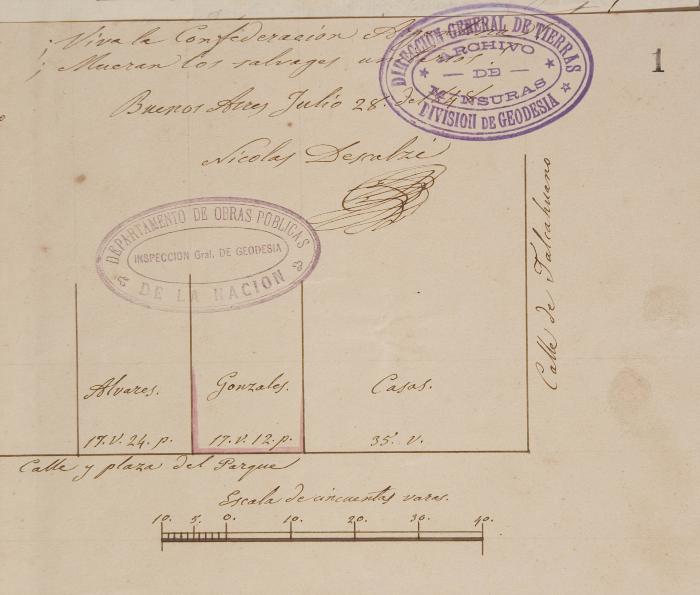 ¡Viva la Confederación
¡Mueran los salvages
Buenos Ayres Julio 28. de
Nicolas Descalzi
DIRECCION GENERAL DE TIERRAS
ARCHIVO
DE
MENSURAS
DIVISION DE GEODESIA
1
DEPARTAMENTO DE OBRAS PÚBLICAS
INSPECCION Gral. DE GEODESIA
DE LA NACION
Calle de Talcahuano
Alvares.
Gonzales.
Casas.
17. v. 24. p.
17. v. 12. p.
35. v.
Calle y plaza del Parque
Escala de cincuenta varas.
10. 5. 0. 10. 20. 30. 40.